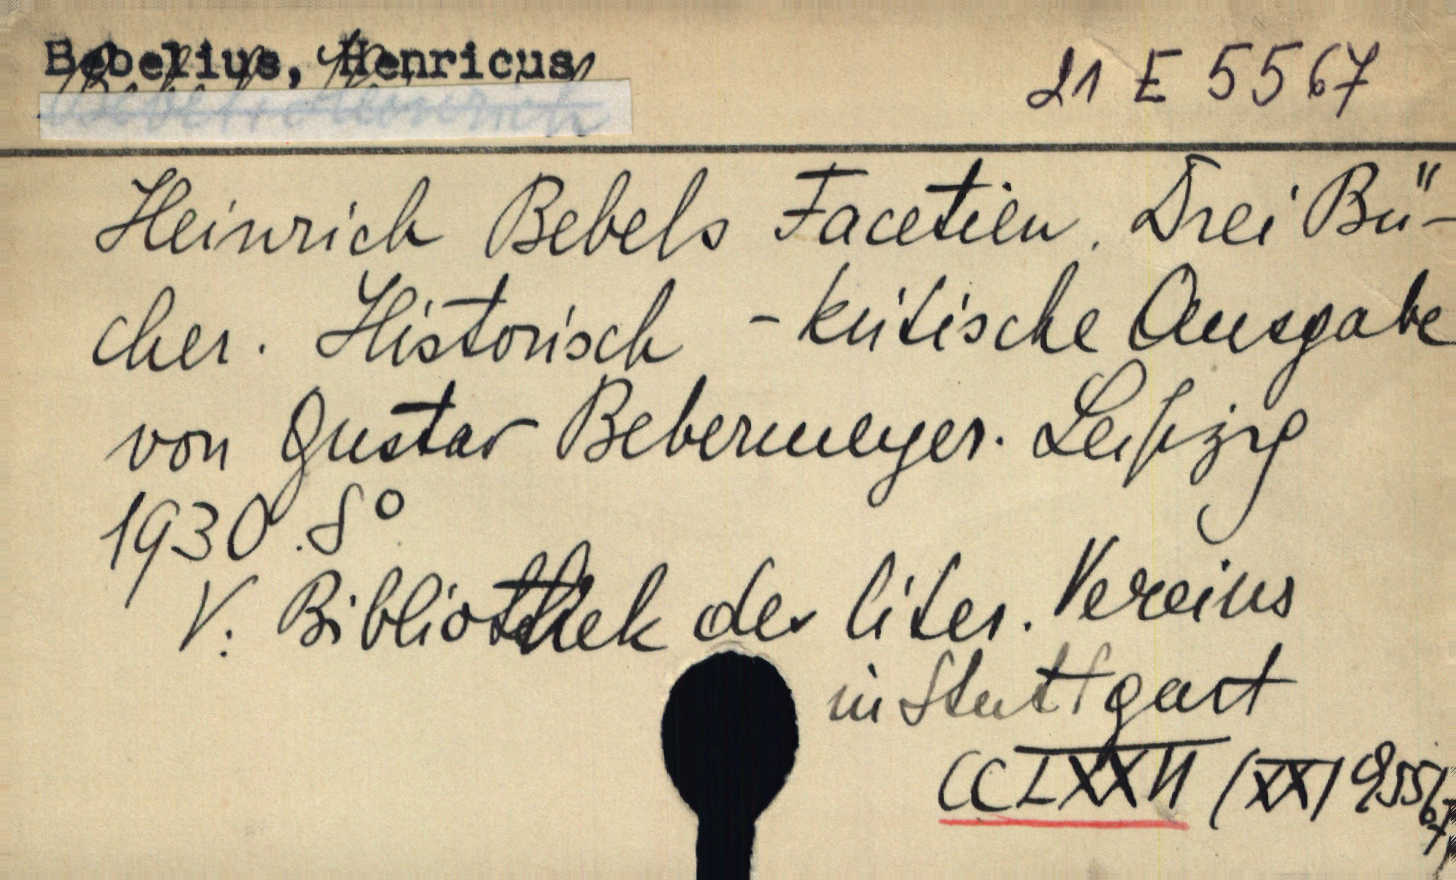 Bebelius, Henricus
21 E 5567
Heinrich Bebels Facetien. Drei Bü-
cher. Historisch - kritische Ausgabe
von Gustav Bebermeyer. Leipzig
1930. 8°
V. Bibliothek des liter. Vereins
in Stuttgart
(XX) 955/67